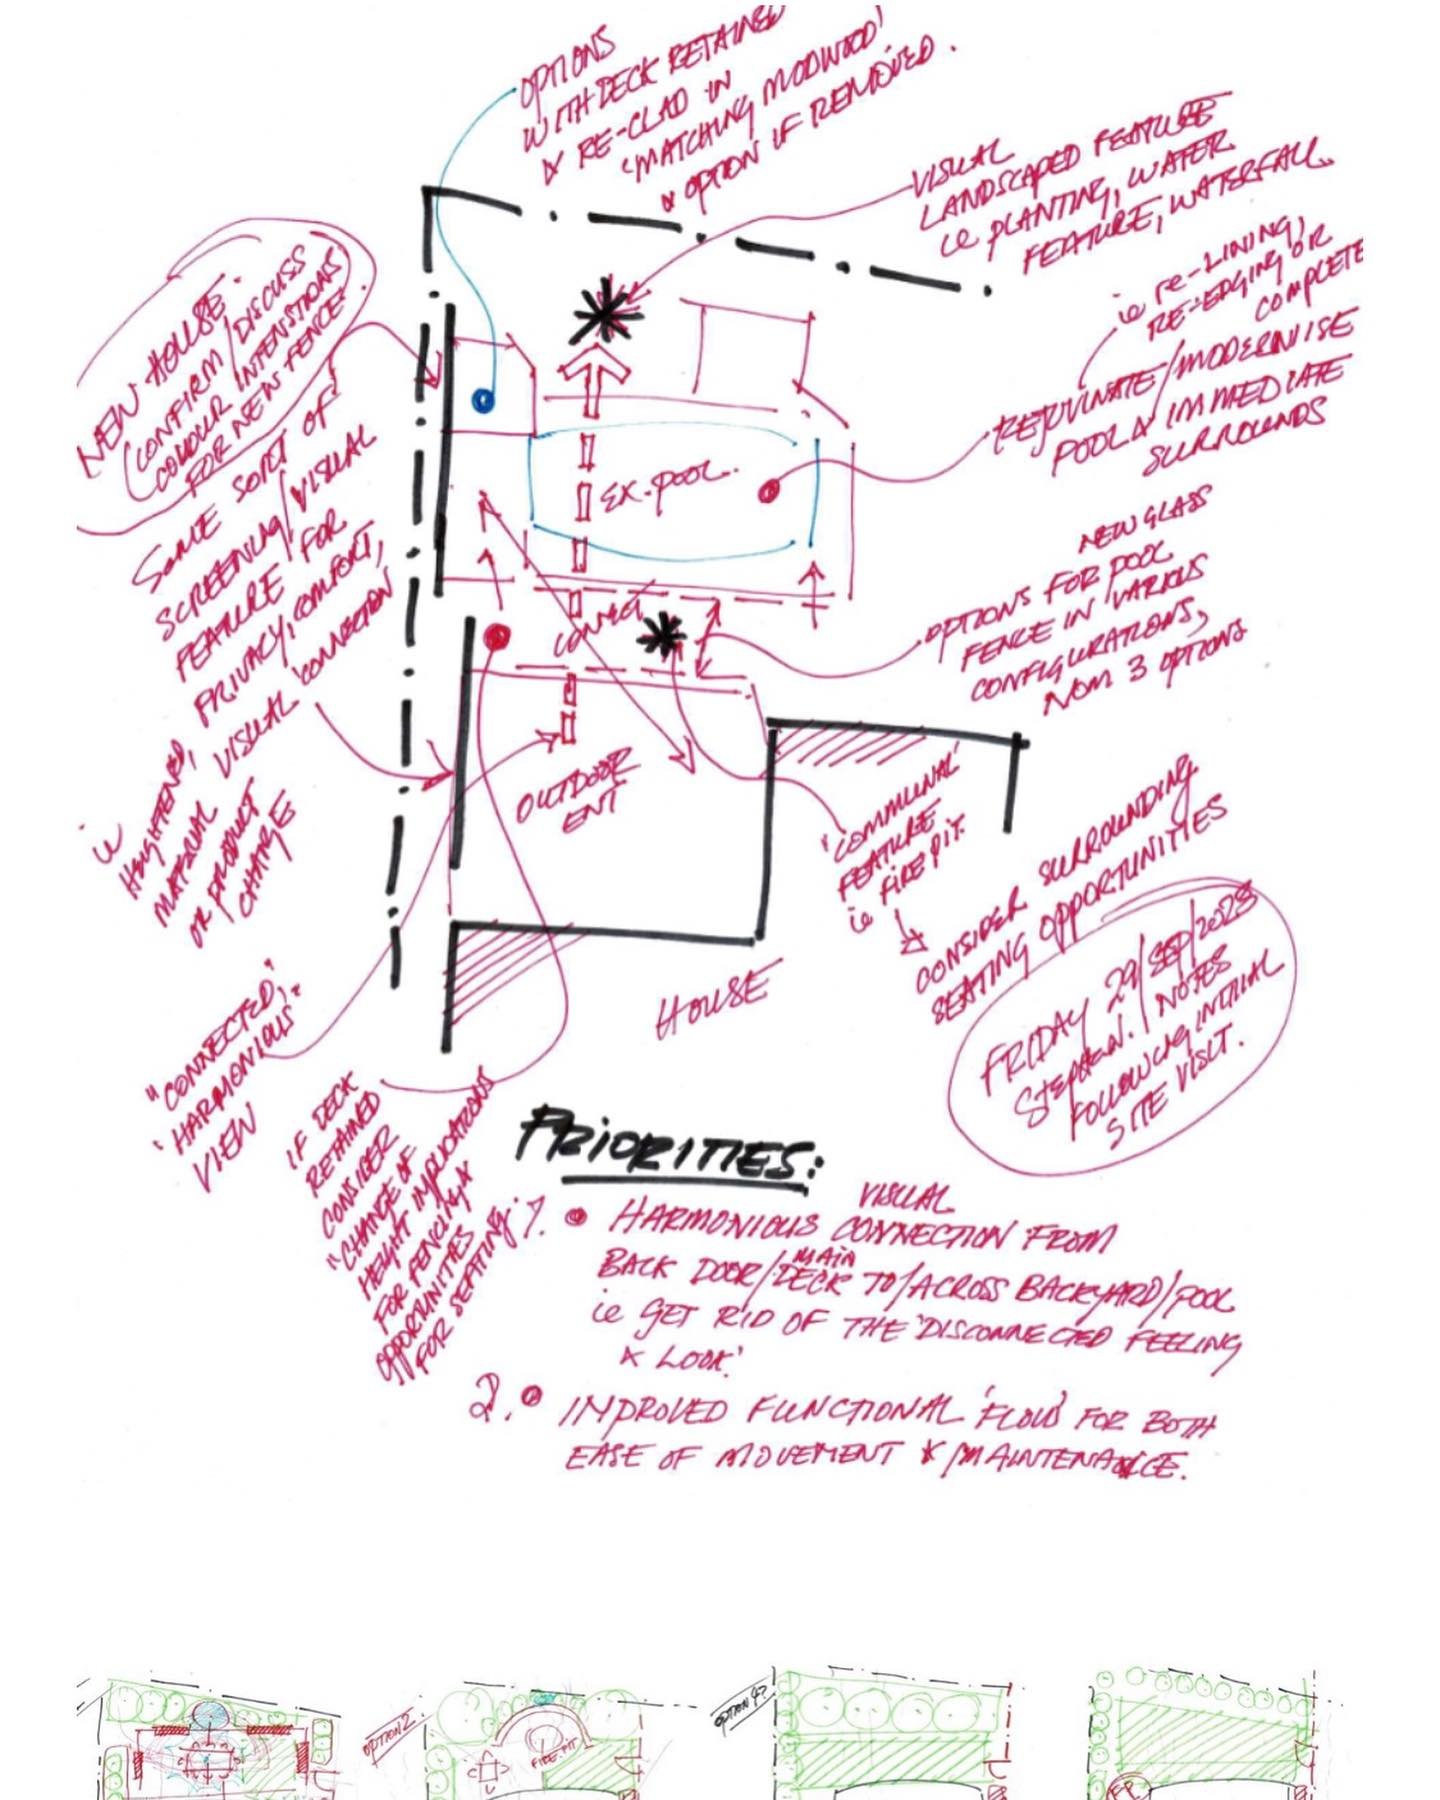 OPTIONS
WITH DECK RETAINED
& RE-CLAD IN
'MATCHING MODWOOD'
& OPTION IF REMOVED.
VISUAL
LANDSCAPED FEATURE
ie PLANTING, WATER
FEATURE, WATERFALL
ie re-LINING,
RE-EDGING OR
COMPLETE
REJUVINATE/MODERNISE
POOL & IMMEDIATE
SURROUNDS
NEW HOUSE.
(CONFIRM/DISCUSS
COLOUR INTENSTIONS
FOR NEW FENCE.
SOME SORT OF
SCREENING/VISUAL
FEATURE FOR
PRIVACY, COMFORT,
VISUAL 'CONNECTION
ie
HEIGHTENED,
MATERIAL
OR PRODUCT
CHANGE
EX-POOL.
NEW GLASS
OPTIONS FOR POOL
FENCE IN VARIOUS
CONFIGURATIONS,
NOM 3 OPTIONS
OUTDOOR
ENT
'COMMUNAL'
FEATURE
ie FIRE PIT.
CONSIDER SURROUNDING
SEATING OPPORTUNITIES
FRIDAY 29/SEP/2023
STEPHEN. / NOTES
FOLLOWING INITIAL
SITE VISIT.
HOUSE
"CONNECTED",
'HARMONIOUS'
VIEW
IF DECK
RETAINED
CONSIDER
"CHANGE OF
HEIGHT IMPLICATIONS
FOR FENCING &
OPPORUNITIES
FOR SEATING.
PRIORITIES:
1. HARMONIOUS VISUAL CONNECTION FROM
BACK DOOR/MAIN DECK TO/ACROSS BACKYARD/POOL
ie GET RID OF THE 'DISCONNECTED FEELING
& LOOK'.
2. IMPROVED FUNCTIONAL 'FLOW' FOR BOTH
EASE OF MOVEMENT & MAINTENANCE.
OPTION 2.
FIRE-PIT
OPTION 4?
F.P.